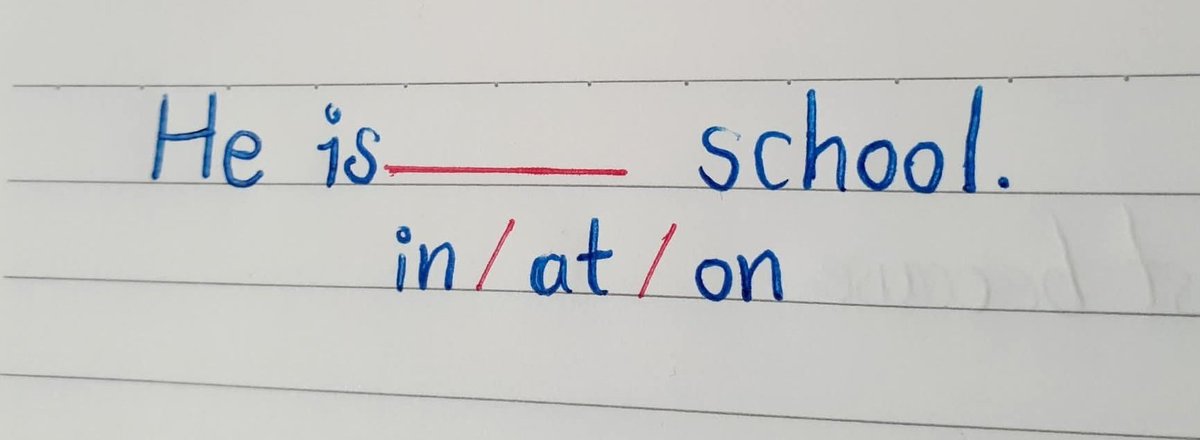 He is______ school.
in/at/on